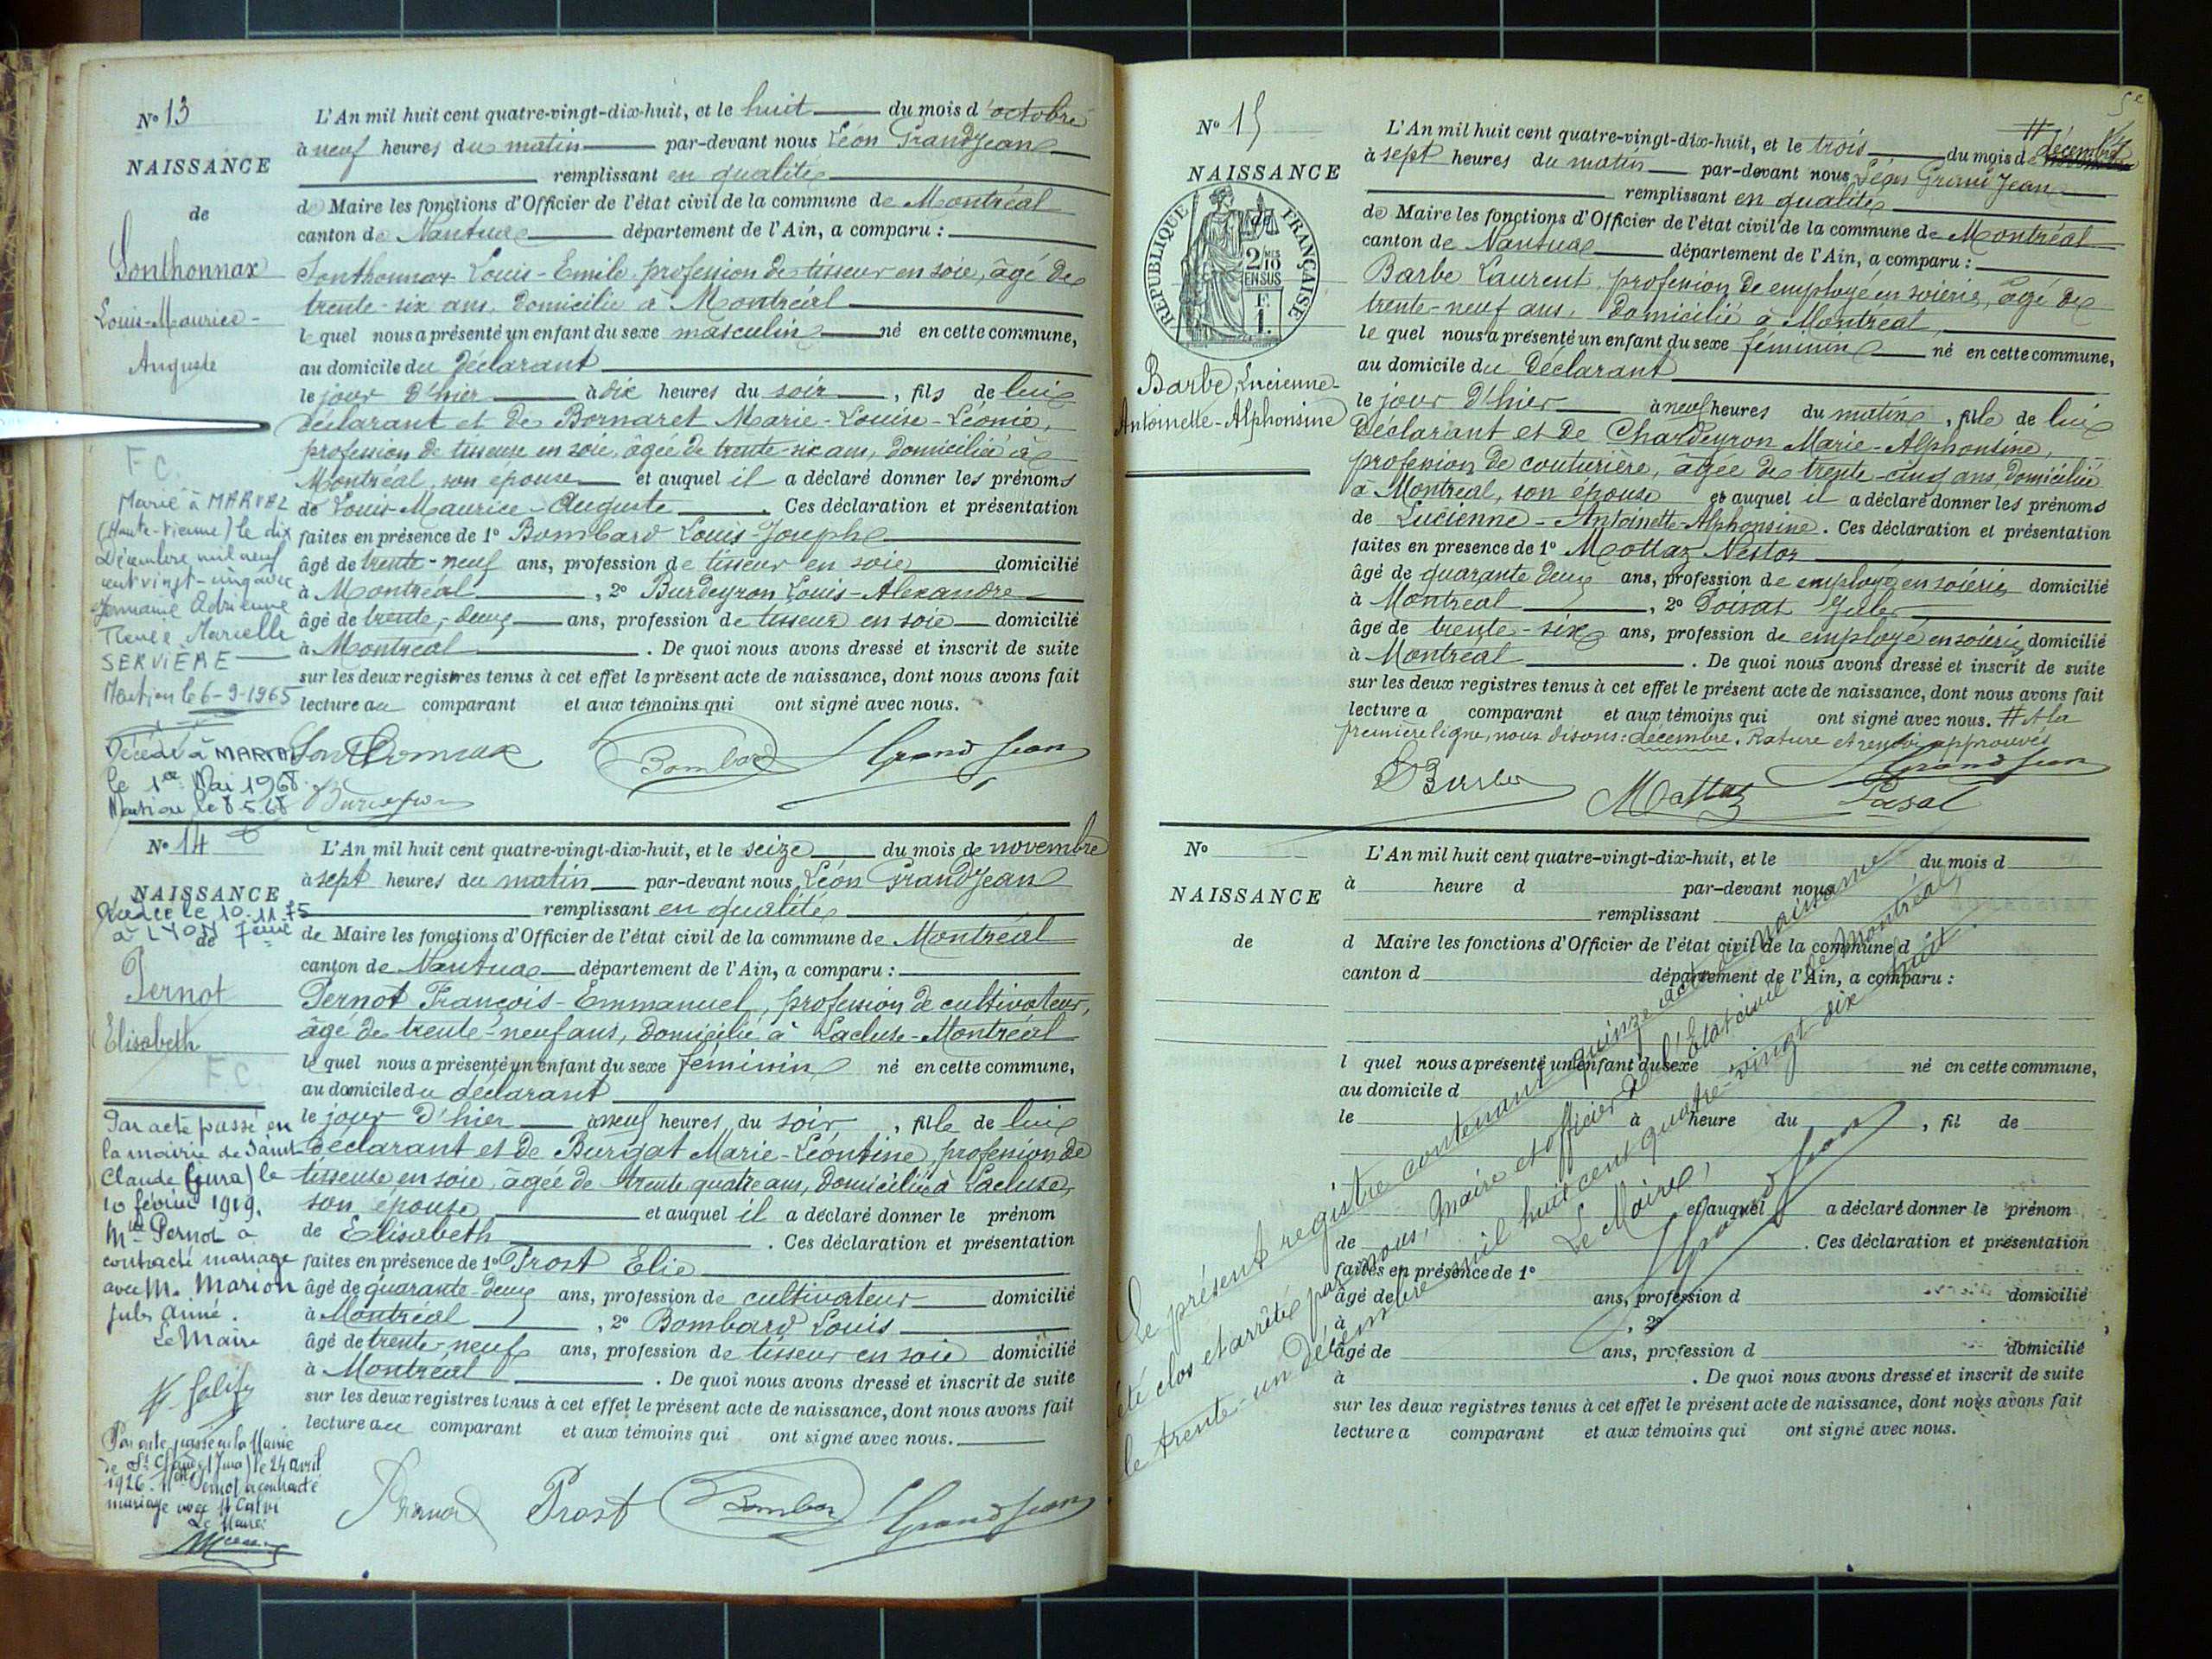 N° 13
NAISSANCE
de
Sonthonnax
Louis-Maurice-
Auguste
F C.
Marié à MARVAL
(Haute-Vienne) le dix
Décembre mil neuf
cent vingt-cinq avec
Germaine Adrienne
Renée Marcelle
SERVIÈRE
Mention le 6-9-1965
Décédé à MARVAL
le 1er Mai 1968.
Mention le 8.5.68
L'An mil huit cent quatre-vingt-dix-huit, et le huit du mois d'octobre
à neuf heures du matin par-devant nous Léon Grandjean
remplissant en qualité
de Maire les fonctions d'Officier de l'état civil de la commune de Montréal
canton de Nantua département de l'Ain, a comparu :
Sonthonnax Louis-Emile profession de tisseur en soie, âgé de
trente-six ans, domicilié à Montréal
lequel nous a présenté un enfant du sexe masculin né en cette commune,
au domicile du déclarant
le jour d'hier à dix heures du soir, fils de lui
déclarant et de Bornaret Marie-Louise-Léonie,
profession de tisseuse en soie, âgée de trente-six ans, domiciliée à
Montréal, son épouse et auquel il a déclaré donner les prénoms
de Louis-Maurice-Auguste. Ces déclaration et présentation
faites en présence de 1° Bombard Louis-Joseph
âgé de trente-neuf ans, profession de tisseur en soie domicilié
à Montréal, 2° Burdeyron Louis-Alexandre
âgé de trente-deux ans, profession de tisseur en soie domicilié
à Montréal. De quoi nous avons dressé et inscrit de suite
sur les deux registres tenus à cet effet le présent acte de naissance, dont nous avons fait
lecture au comparant et aux témoins qui ont signé avec nous.
Sonthonnax Bombard Grandjean
Burdeyron
N° 14
NAISSANCE
Décédée le 10.11.75
à LYON 7ème
de
Pernot
Elisabeth
F.C.
Par acte passé en
la mairie de Saint-
Claude (Jura) le
10 février 1919.
Mlle Pernot a
contracté mariage
avec M. Marion
Jules Aimé.
Le Maire
Par acte passé en la Mairie
de St Claude (Jura) le 24 avril
1926. Mme Pernot a contracté
mariage avec M Calvi
Le Maire
L'An mil huit cent quatre-vingt-dix-huit, et le seize du mois de novembre
à sept heures du matin par-devant nous Léon Grandjean
remplissant en qualité
de Maire les fonctions d'Officier de l'état civil de la commune de Montréal
canton de Nantua département de l'Ain, a comparu :
Pernot François-Emmanuel, profession de cultivateur,
âgé de trente-neuf ans, domicilié à Lacluse-Montréal
lequel nous a présenté un enfant du sexe féminin né en cette commune,
au domicile du déclarant
le jour d'hier à neuf heures du soir, fille de lui
déclarant et de Burgat Marie-Léontine, profession de
tisseuse en soie, âgée de trente quatre ans, domiciliée à Lacluse,
son épouse et auquel il a déclaré donner le prénom
de Elisabeth. Ces déclaration et présentation
faites en présence de 1° Prost Elie
âgé de quarante-deux ans, profession de cultivateur domicilié
à Montréal, 2° Bombard Louis
âgé de trente-neuf ans, profession de tisseur en soie domicilié
à Montréal. De quoi nous avons dressé et inscrit de suite
sur les deux registres tenus à cet effet le présent acte de naissance, dont nous avons fait
lecture au comparant et aux témoins qui ont signé avec nous.
Pernot Prost Bombard Grandjean
5e
N° 15
NAISSANCE
de
RÉPUBLIQUE FRANÇAISE
2/10 EN SUS
Barbe, Lucienne-
Antoinette-Alphonsine
# décembre
L'An mil huit cent quatre-vingt-dix-huit, et le trois du mois de novembre
à sept heures du matin par-devant nous Léon Grandjean
remplissant en qualité
de Maire les fonctions d'Officier de l'état civil de la commune de Montréal
canton de Nantua département de l'Ain, a comparu :
Barbe Laurent, profession de employé en soierie, âgé de
trente-neuf ans, domicilié à Montréal,
lequel nous a présenté un enfant du sexe féminin né en cette commune,
au domicile du déclarant
le jour d'hier à neuf heures du matin, fille de lui
déclarant et de Chardeyron Marie-Alphonsine,
profession de couturière, âgée de trente-cinq ans, domiciliée
à Montréal, son épouse et auquel il a déclaré donner les prénoms
de Lucienne-Antoinette-Alphonsine. Ces déclaration et présentation
faites en présence de 1° Mottaz Nestor
âgé de quarante deux ans, profession de employé en soierie domicilié
à Montréal, 2° Poisat Jules
âgé de trente-six ans, profession de employé en soierie domicilié
à Montréal. De quoi nous avons dressé et inscrit de suite
sur les deux registres tenus à cet effet le présent acte de naissance, dont nous avons fait
lecture a comparant et aux témoins qui ont signé avec nous. # A la
première ligne, nous disons : décembre. Rature et renvoi approuvés
Barbe Mottaz Grandjean
Poisat
N°
NAISSANCE
de
L'An mil huit cent quatre-vingt-dix-huit, et le du mois d
à heure d par-devant nous
remplissant
d Maire les fonctions d'Officier de l'état civil de la commune d
canton d département de l'Ain, a comparu :
l quel nous a présenté un enfant du sexe né en cette commune,
au domicile d
le à heure du , fil de
et auquel a déclaré donner le prénom
de . Ces déclaration et présentation
faites en présence de 1°
âgé de ans, profession d domicilié
à , 2°
âgé de ans, profession d domicilié
à . De quoi nous avons dressé et inscrit de suite
sur les deux registres tenus à cet effet le présent acte de naissance, dont nous avons fait
lecture a comparant et aux témoins qui ont signé avec nous.
Le présent registre contenant quinze actes de naissance a
été clos et arrêté par nous, Maire et officier de l'Etat civil de Montréal,
le trente-un décembre mil huit cent quatre-vingt-dix huit.
Le Maire,
Grandjean